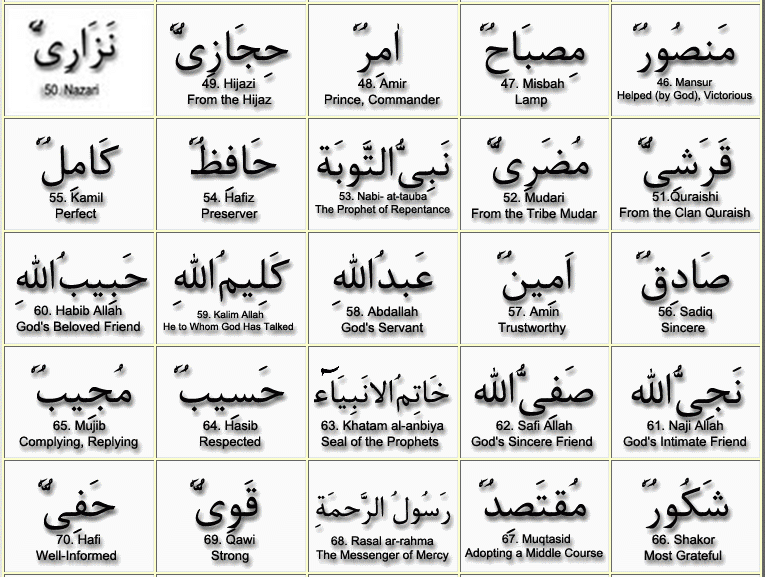 مَنصُورٌ
46. Mansur
Helped (by God), Victorious
مِصبَاحٌ
47. Misbah
Lamp
اٰمِرٌ
48. Amir
Prince, Commander
حِجَازِىٌّ
49. Hijazi
From the Hijaz
نَزَارِىٌّ
50. Nazari
قَرَشِىٌّ
51.Quraishi
From the Clan Quraish
مُضَرِىٌّ
52. Mudari
From the Tribe Mudar
نَبِىُّ التَّوبَة
53. Nabi- at-tauba
The Prophet of Repentance
حَافِظٌ
54. Hafiz
Preserver
كَامِلٌ
55. Kamil
Perfect
صَادِقٌ
56. Sadiq
Sincere
اَمِينٌ
57. Amin
Trustworthy
عَبدُاللهِ
58. Abdallah
God's Servant
كَلِيمُ اللهِ
59. Kalim Allah
He to Whom God Has Talked
حَبِيبُ اللهِ
60. Habib Allah
God's Beloved Friend
نَجِىُّ الله
61. Naji Allah
God's Intimate Friend
صَفِىُّ الله
62. Safi Allah
God's Sincere Friend
خَاتِمُ الانبِيَآء
63. Khatam al-anbiya
Seal of the Prophets
حَسِيبٌ
64. Hasib
Respected
مُجِيبٌ
65. Mujib
Complying, Replying
شَكُورٌ
66. Shakor
Most Grateful
مُقتَصِدٌ
67. Muqtasid
Adopting a Middle Course
رَسُولُ الرَّحمَةِ
68. Rasal ar-rahma
The Messenger of Mercy
قَوِىٌّ
69. Qawi
Strong
حَفِىٌّ
70. Hafi
Well-Informed